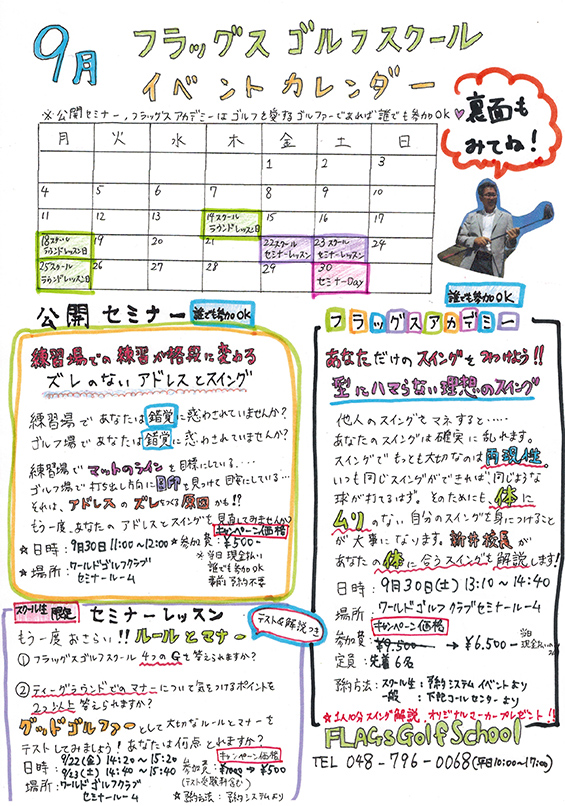 9月
フラッグス ゴルフスクール
イベント カレンダー
※公開セミナー，フラッグスアカデミーはゴルフを愛するゴルファーであれば誰でも参加OK♡
裏面も
みてね！
月 火 水 木 金 土 日
1 2 3
4 5 6 7 8 9 10
11 12 13 14スクールラウンドレッスン日 15 16 17
18スクールラウンドレッスン日 19 20 21 22スクールセミナーレッスン 23スクールセミナーレッスン 24
25スクールラウンドレッスン日 26 27 28 29 30セミナーDay
公開セミナー 誰でも参加OK
練習場での練習が格段に変わる
ズレのないアドレスとスイング
練習場であなたは錯覚に惑わされていませんか？
ゴルフ場であなたは錯覚に惑わされていませんか？
練習場でマットのラインを目標にしている…
ゴルフ場で打ち出し方向に目印を見つけて目安にしている…
それは、アドレスのズレをつくる原因かも!?
もう一度、あなたのアドレスとスイングを見直してみませんか
キャンペーン価格
★日時：9月30日 11:00〜12:00 ★参加費：¥500-
※当日現金払い
★場所：ワールドゴルフクラブ
セミナールーム
誰でも参加OK
事前予約不要
スクール生限定 セミナーレッスン
テスト&解説つき
もう一度おさらい!!ルールとマナー
①フラッグスゴルフスクール4つのGを答えられますか？
②ティーグラウンドでのマナーについて気をつけるポイントを
2つ以上答えられますか？
グッドゴルファーとして大切なルールとマナーを
テストしてみましょう！あなたは何点とれますか？
キャンペーン価格
日時：9/22(金) 14:20〜15:20
9/23(土) 14:40〜15:40
参加費：¥1000→¥500
(テスト受験料含む)
場所：ワールドゴルフクラブ
セミナールーム
★予約方法：予約システムより
誰でも参加OK
フラッグスアカデミー
あなただけのスイングをみつけよう!!
型にハマらない理想のスイング
他人のスイングをマネすると……
あなたのスイングは確実に乱れます。
スイングでもっとも大切なのは再現性。
いつも同じスイングができれば同じような
球が打てるはず。そのためにも、体に
ムリのない自分のスイングを身につけること
が大事になります。新井校長が
あなたの体に合うスイングを解説します！
日時：9月30日(土) 13:10〜14:40
場所：ワールドゴルフクラブセミナールーム
キャンペーン価格
参加費：¥9.500-→¥6.500-
当日
現金払いのみ
定員：先着6名
予約方法：スクール生：予約システムイベントより
一般：下記コールセンターより
★1人10分スイング解説、オリジナルマーカープレゼント!!
FLAGS Golf School
TEL 048-796-0068(平日10:00〜17:00)